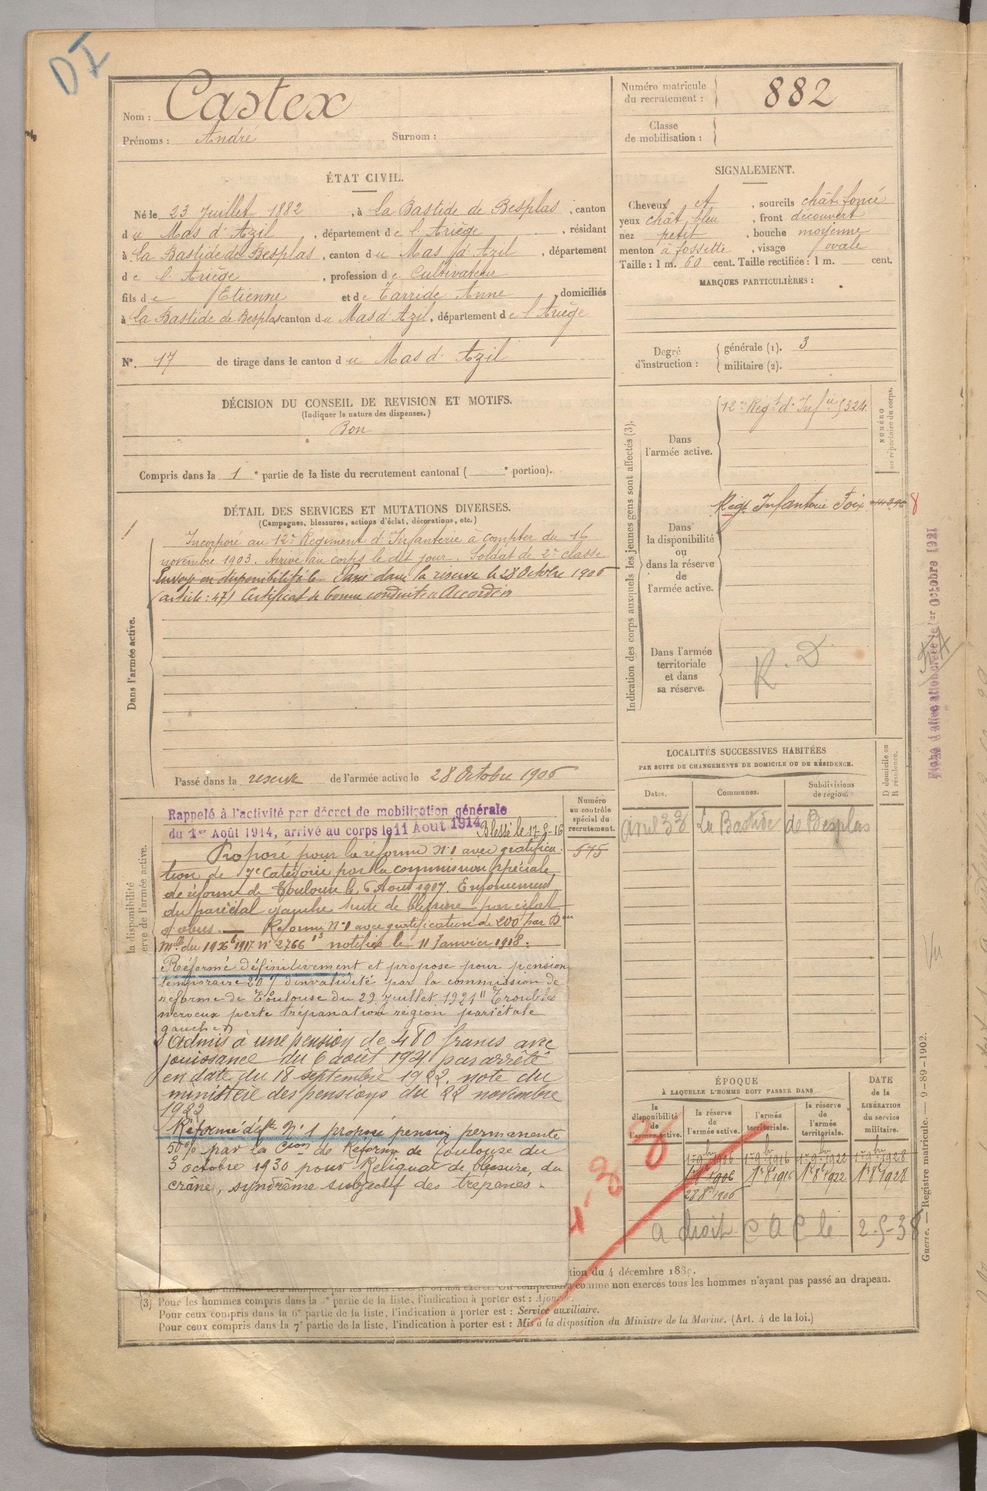 DI
Nom : Castex
Prénoms : André Surnom :
Numéro matricule du recrutement : 882
Classe de mobilisation :
ÉTAT CIVIL.
Né le 23 Juillet 1882, à La Bastide de Besplas, canton
du Mas d'Azil, département de l'Ariège, résidant
à La Bastide de Besplas, canton du Mas d'Azil, département
de l'Ariège, profession de Cultivateur
fils de Etienne et de Tarride Anne domiciliés
à La Bastide de Besplas canton du Mas d'Azil, département de l'Ariège
N°. 17 de tirage dans le canton du Mas d'Azil
SIGNALEMENT.
Cheveux et, sourcils chât. foncé
yeux chât. bleu, front découvert
nez petit, bouche moyenne
menton à fossette, visage ovale
Taille : 1 m. 60 cent. Taille rectifiée : 1 m. cent.
MARQUES PARTICULIÈRES :
Degré d'instruction : générale (1). 3
militaire (2).
DÉCISION DU CONSEIL DE REVISION ET MOTIFS.
(Indiquer la nature des dispenses.)
Bon
Compris dans la 1e partie de la liste du recrutement cantonal ( e portion).
DÉTAIL DES SERVICES ET MUTATIONS DIVERSES.
(Campagnes, blessures, actions d'éclat, décorations, etc.)
Dans l'armée active.
Incorporé au 12e Régiment d'Infanterie à compter du 16
novembre 1903. Arrivé au corps le dit jour. Soldat de 2e classe
Envoyé en disponibilité le Passé dans la réserve le 28 Octobre 1906
(article : 47) Certificat de bonne conduite Accordé
Passé dans la réserve de l'armée active le 28 Octobre 1906
Indication des corps auxquels les jeunes gens sont affectés (3).
NUMÉRO au répertoire du corps.
Dans l'armée active.
12e Régt d'Infie 5324
Dans la disponibilité ou dans la réserve de l'armée active.
Régt Infanterie Foix
8
Dans l'armée territoriale et dans sa réserve.
R. D
LOCALITÉS SUCCESSIVES HABITÉES
PAR SUITE DE CHANGEMENTS DE DOMICILE OU DE RÉSIDENCE.
Dates. Communes. Subdivisions de région. D domicile ou R résidence.
avril 33 La Bastide de Besplas
Numéro au contrôle spécial du recrutement.
575
Rappelé à l'activité par décret de mobilisation générale
du 1er Août 1914, arrivé au corps le 11 Août 1914 Blessé le 17-3-16
Proposé pour la réforme N°1 avec gratifica-
tion de 7e catégorie par la commission spéciale
de réforme de Toulouse le 6 Août 1917. Enfoncement
du pariétal gauche suite de blessure par éclat
d'obus. Réformé N°1 avec gratification de 200 par Don
notifiée le 11 Janvier 1918.
Réformé définitivement et proposé pour pension
temporaire 20% d'invalidité par la commission de
réforme de Toulouse du 29 juillet 1921 "Troubles
nerveux perte trépanation région pariétale
gauche"
Admis à une pension de 480 francs avec
jouissance du 6 août 1921 par arrêté
en date du 18 septembre 1922, note du
ministère des pensions du 22 novembre
1922
Réformé déft N°1 proposé pension permanente
50% par la Cion de Réforme de Toulouse du
3 octobre 1930 pour Reliquat de blessure du
crâne, syndrôme subjectif des trépanés.
ÉPOQUE
À LAQUELLE L'HOMME DOIT PASSER DANS
la disponibilité de l'armée active. la réserve de l'armée active. l'armée territoriale. la réserve de l'armée territoriale.
DATE de la LIBÉRATION du service militaire.
1er 9bre 1906 1er 9bre 1916 1er 9bre 1922 1er 9bre 1928
1er 8bre 1906 1er 8 1916 1er 8bre 1922 1er 8bre 1928
28 8bre 1906
a droit C A C le 2-5-38
tion du 4 décembre 1889.
comme non exercés tous les hommes n'ayant pas passé au drapeau.
(3) Pour les hommes compris dans la partie de la liste, l'indication à porter est :
Pour ceux compris dans la 6e partie de la liste, l'indication à porter est : Service auxiliaire.
Pour ceux compris dans la 7e partie de la liste, l'indication à porter est : Mis à la disposition du Ministre de la Marine. (Art. 4 de la loi.)
Guerre. — Registre matricule. — 9-89-1902.
Octobre 1921
Vu